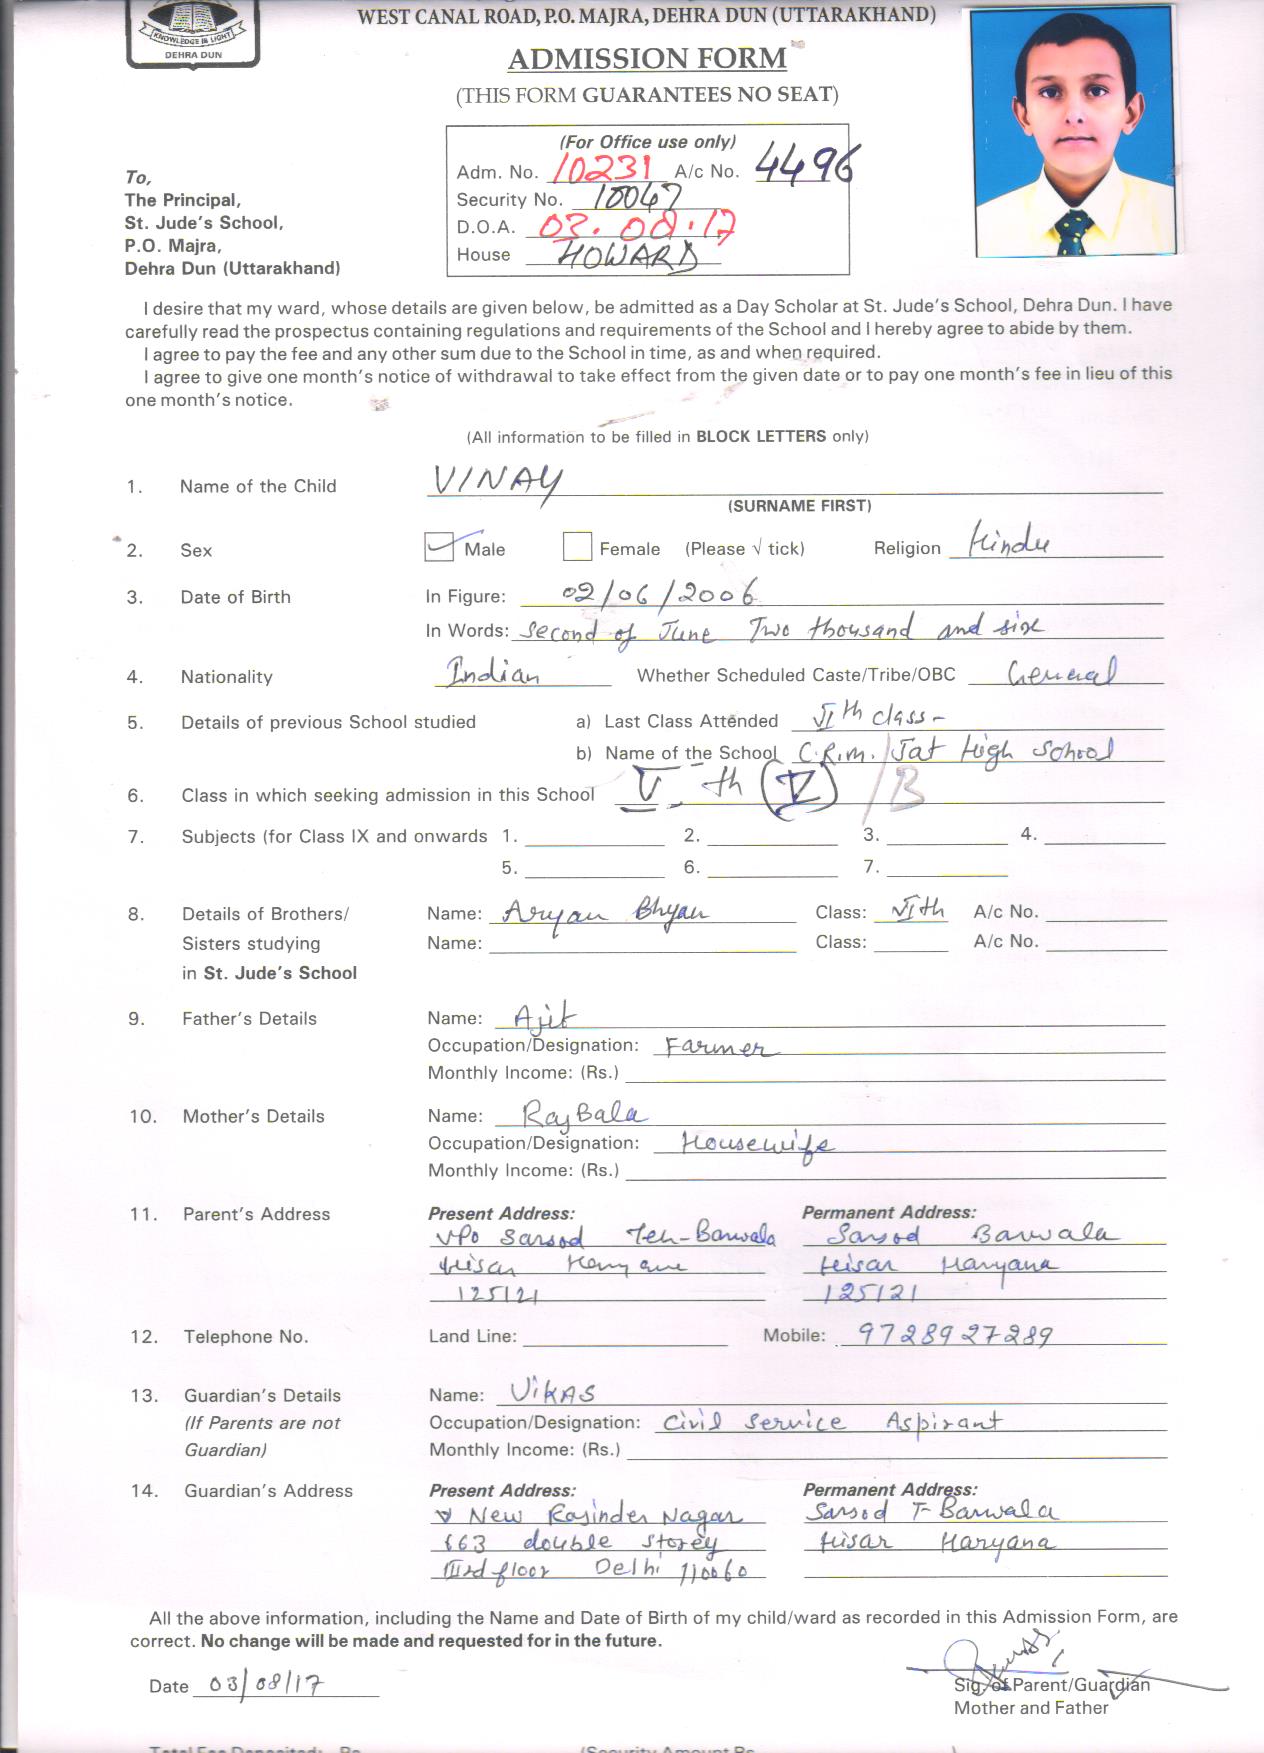 KNOWLEDGE IS LIGHT
DEHRA DUN
WEST CANAL ROAD, P.O. MAJRA, DEHRA DUN (UTTARAKHAND)
ADMISSION FORM
(THIS FORM GUARANTEES NO SEAT)
(For Office use only)
Adm. No. 10231 A/c No. 4496
Security No. 10047
D.O.A. 03.08.17
House HOWARD
To,
The Principal,
St. Jude's School,
P.O. Majra,
Dehra Dun (Uttarakhand)
I desire that my ward, whose details are given below, be admitted as a Day Scholar at St. Jude's School, Dehra Dun. I have
carefully read the prospectus containing regulations and requirements of the School and I hereby agree to abide by them.
I agree to pay the fee and any other sum due to the School in time, as and when required.
I agree to give one month's notice of withdrawal to take effect from the given date or to pay one month's fee in lieu of this
one month's notice.
(All information to be filled in BLOCK LETTERS only)
1. Name of the Child VINAY
(SURNAME FIRST)
2. Sex Male Female (Please √ tick) Religion Hindu
3. Date of Birth In Figure: 02/06/2006
In Words: Second of June Two thousand and six
4. Nationality Indian Whether Scheduled Caste/Tribe/OBC General
5. Details of previous School studied a) Last Class Attended VIth class-
b) Name of the School C.R.M. Jat High School
6. Class in which seeking admission in this School V th (V) /B
7. Subjects (for Class IX and onwards 1. 2. 3. 4.
5. 6. 7.
8. Details of Brothers/ Name: Aryan Bhyan Class: VIth A/c No.
Sisters studying Name: Class: A/c No.
in St. Jude's School
9. Father's Details Name: Ajit
Occupation/Designation: Farmer
Monthly Income: (Rs.)
10. Mother's Details Name: RajBala
Occupation/Designation: Housewife
Monthly Income: (Rs.)
11. Parent's Address Present Address: Permanent Address:
VPO Sarsod Teh-Barwala Sarsod Barwala
Hisar Haryana Hisar Haryana
125121 125121
12. Telephone No. Land Line: Mobile: 9728927289
13. Guardian's Details Name: VIKAS
(If Parents are not Occupation/Designation: Civil Service Aspirant
Guardian) Monthly Income: (Rs.)
14. Guardian's Address Present Address: Permanent Address:
New Rajinder Nagar Sarsod T-Barwala
663 double storey Hisar Haryana
IIIrd floor Delhi 110060
All the above information, including the Name and Date of Birth of my child/ward as recorded in this Admission Form, are
correct. No change will be made and requested for in the future.
Date 03/08/17
Sig. of Parent/Guardian
Mother and Father